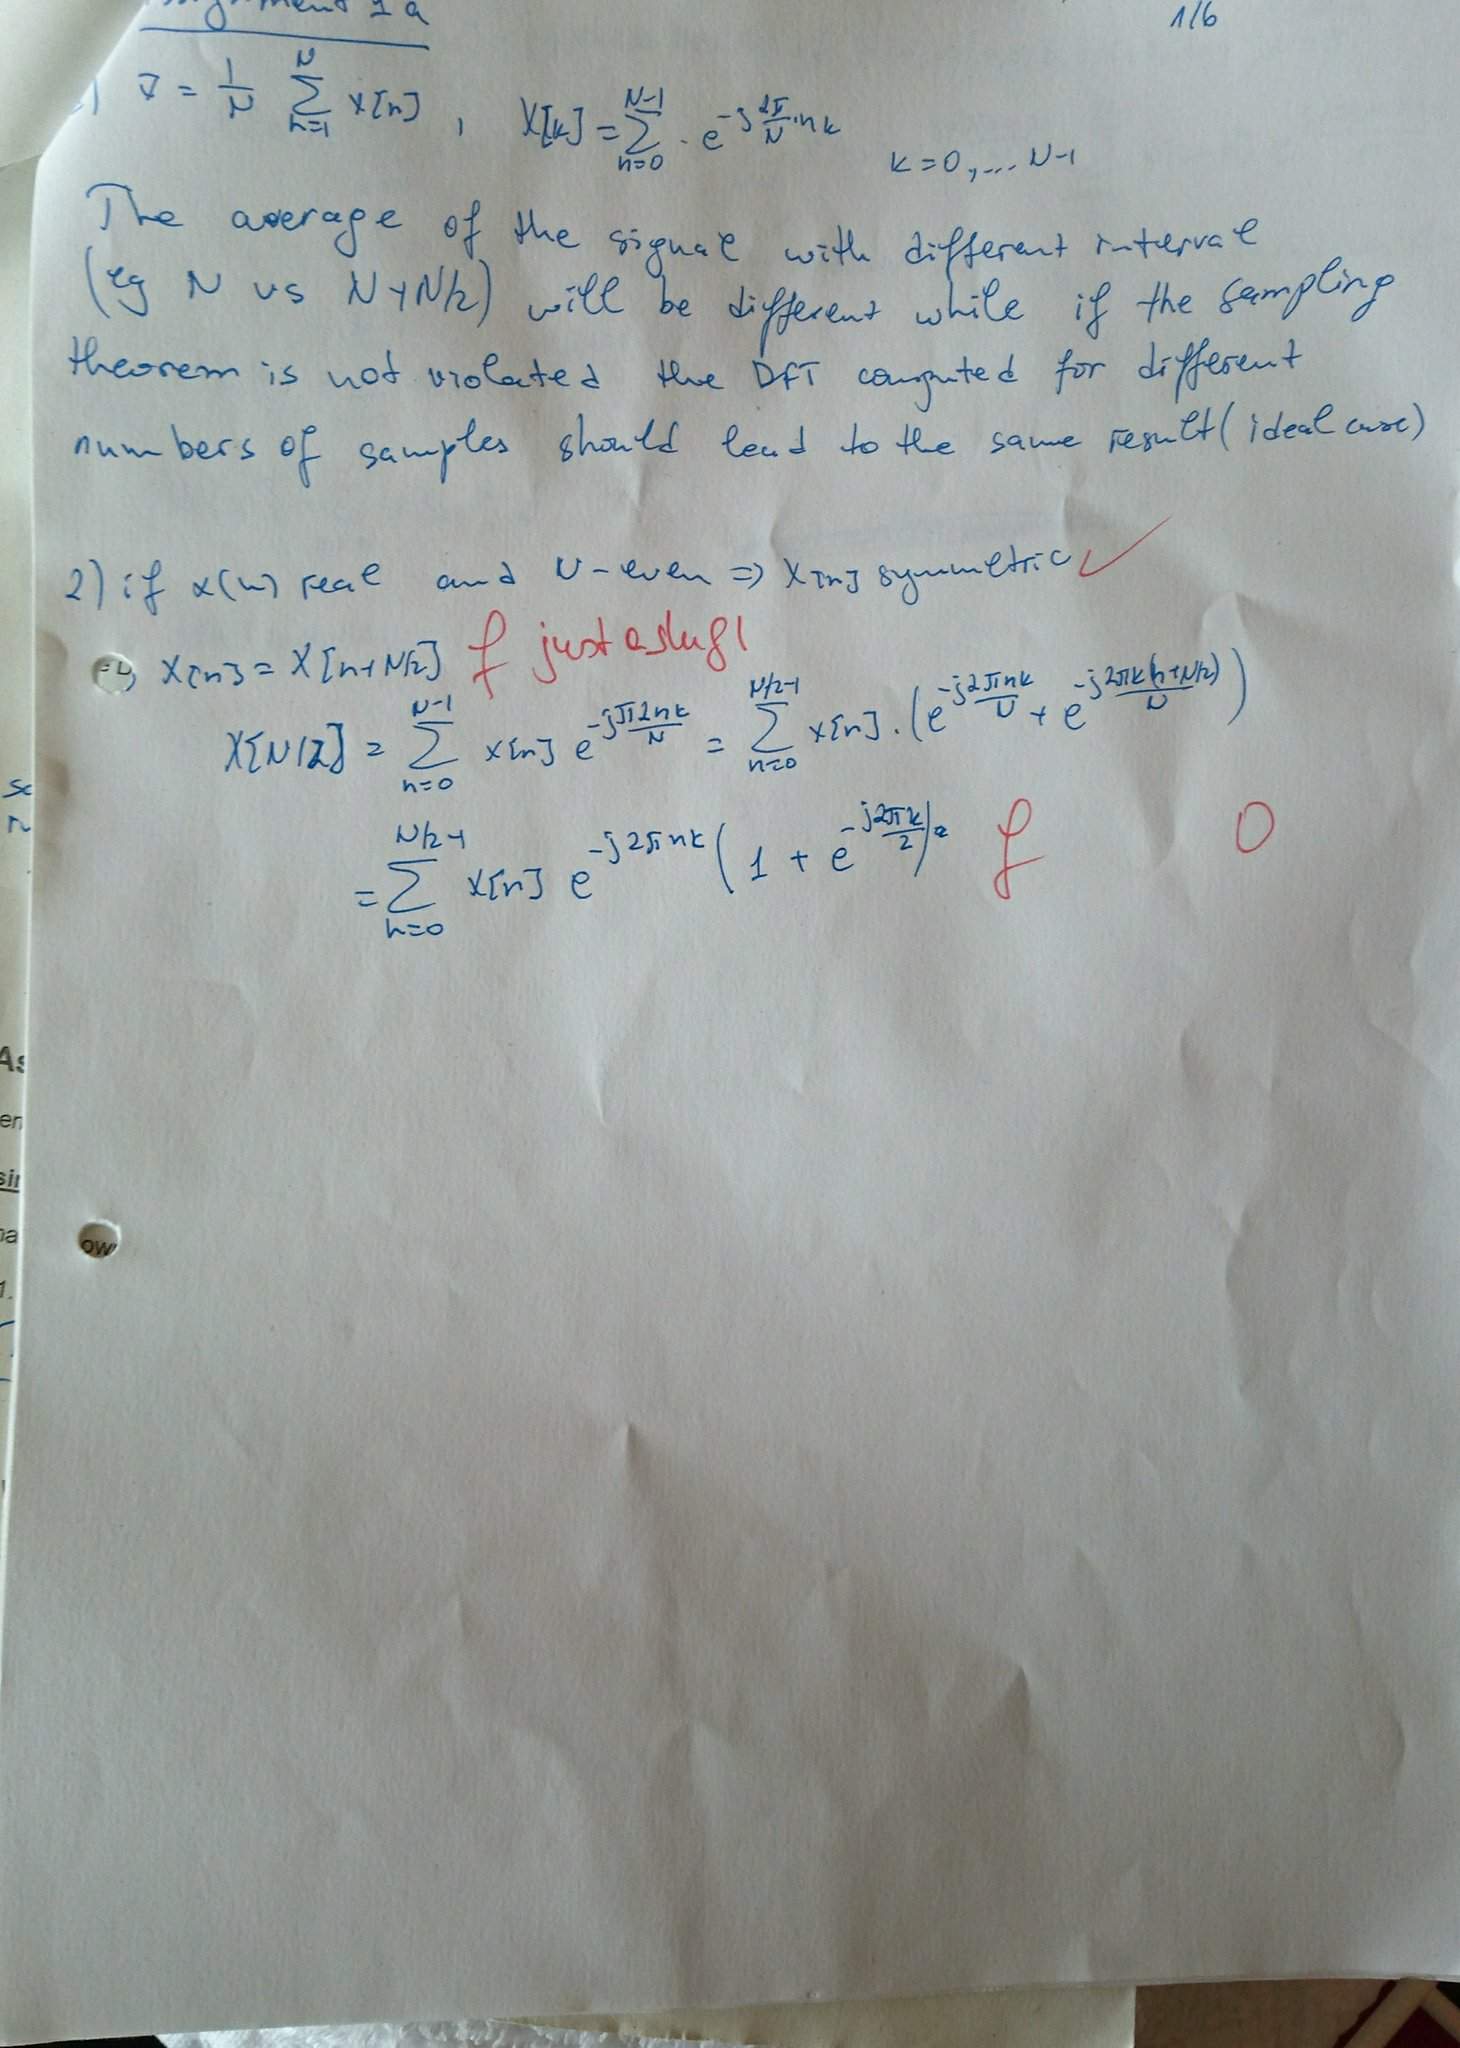 assignment 1a
1/6
x̄ = 1/N ∑_{n=1}^{N} x[n] , X[k] = ∑_{n=0}^{N-1} · e^{-j 2π/N · nk} k=0,... N-1
The average of the signal with different interval
(eg N vs N+N/2) will be different while if the sampling
theorem is not violated the DFT computed for different
numbers of samples should lead to the same result (ideal case)
2) if x(n) real and N-even => X[n] symmetric ✓
x[n] = X[n+N/2] f just
X[N/2] = ∑_{n=0}^{N-1} x[n] e^{-jπ2nk/N} = ∑_{n=0}^{N/2-1} x[n] · (e^{-j2πnk/N} + e^{-j2πk(n+N/2)/N})
= ∑_{n=0}^{N/2-1} x[n] e^{-j2πnk} (1 + e^{-j2πk/2}) = f 0
As
en
sin
1.
ow